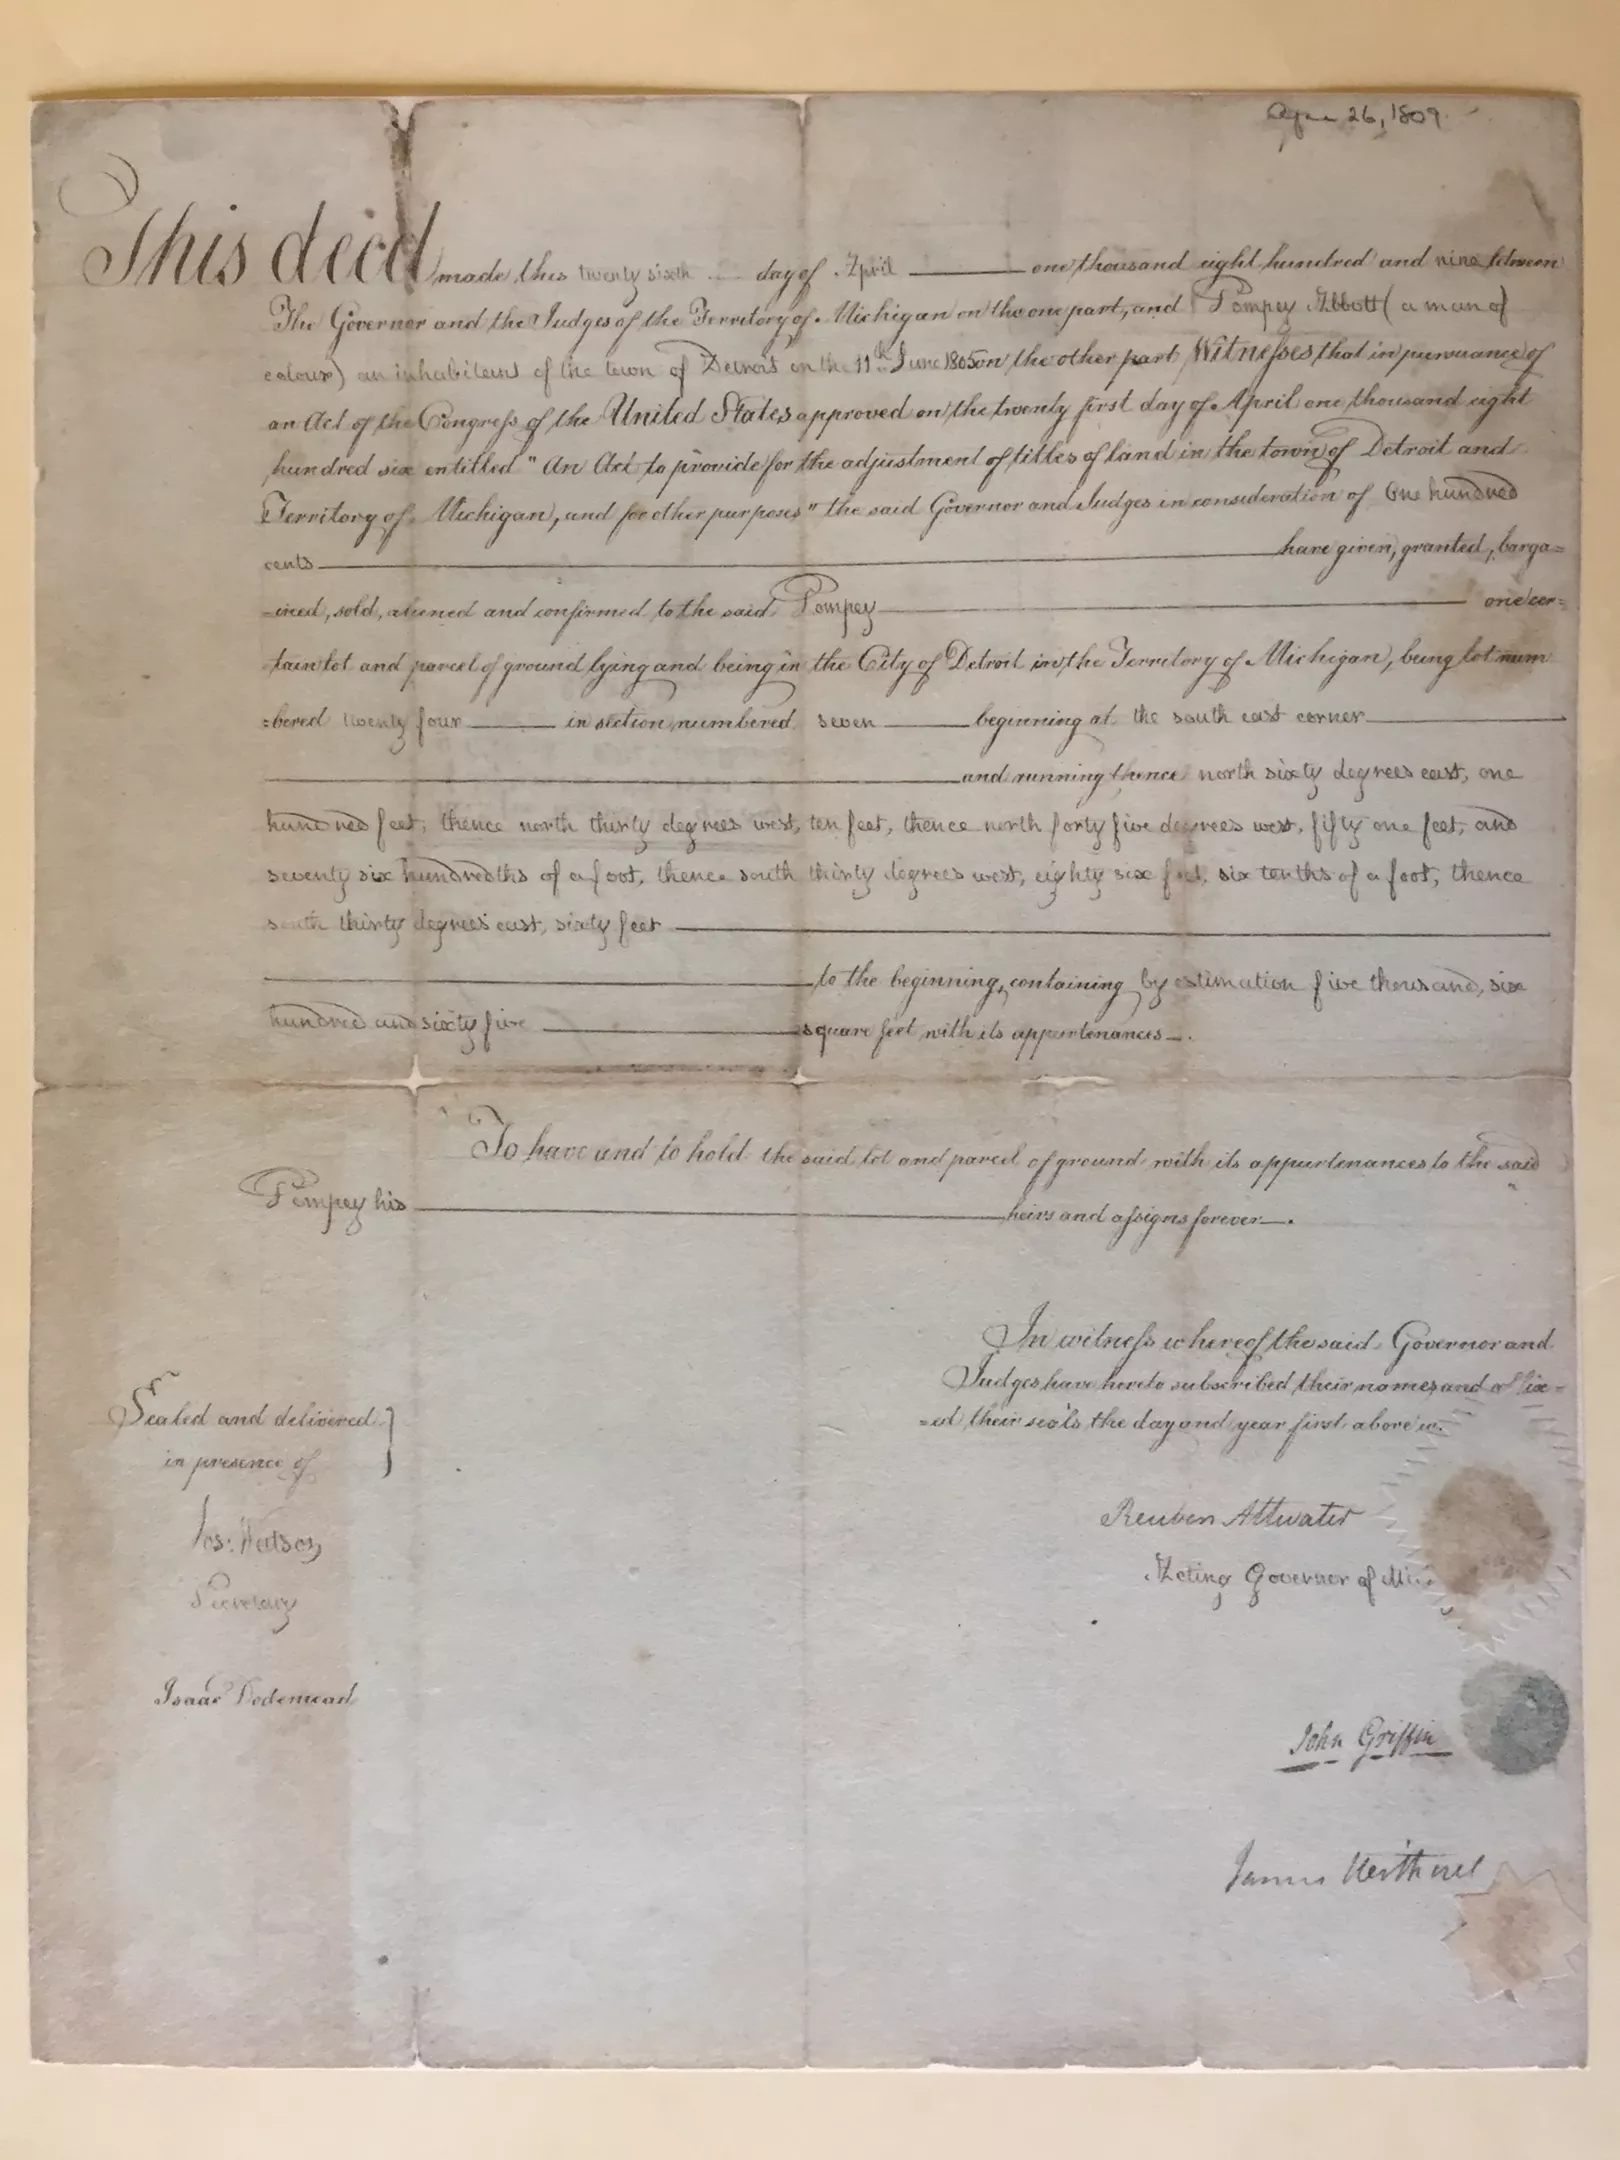 Apr 26, 1809
This deed made this twenty sixth day of April one thousand eight hundred and nine between
The Governor and the Judges of the Territory of Michigan on the one part, and Pompey Abbott (a man of
colour) an inhabitant of the town of Detroit on the 11th June 1805 on the other part Witnesses that in pursuance of
an Act of the Congress of the United States approved on the twenty first day of April one thousand eight
hundred six entitled "An Act to provide for the adjustment of titles of land in the town of Detroit and
Territory of Michigan, and for other purposes" the said Governor and Judges in consideration of One hundred
cents have given, granted, barga=
=ined, sold, aliened and confirmed to the said Pompey one cer=
tain lot and parcel of ground lying and being in the City of Detroit in the Territory of Michigan, being lot num
=bered twenty four in section numbered seven beginning at the south east corner
and running thence north sixty degrees east, one
hundred feet, thence north thirty degrees west, ten feet, thence north forty five degrees west, fifty one feet, and
seventy six hundredths of a foot, thence south thirty degrees west, eighty six feet, six tenths of a foot, thence
south thirty degrees east, sixty feet
to the beginning, containing by estimation five thousand, six
hundred and sixty five square feet with its appurtenances.
To have and to hold the said lot and parcel of ground with its appurtenances to the said
Pompey his heirs and assigns forever.
In witness whereof the said Governor and
Judges have hereto subscribed their names and affix=
=ed their seals the day and year first above w.
Sealed and delivered
in presence of
Jos: Watson,
Secretary
Isaac Dodemead
Reuben Attwater
Acting Governor of Mi
John Griffin
James Witherell